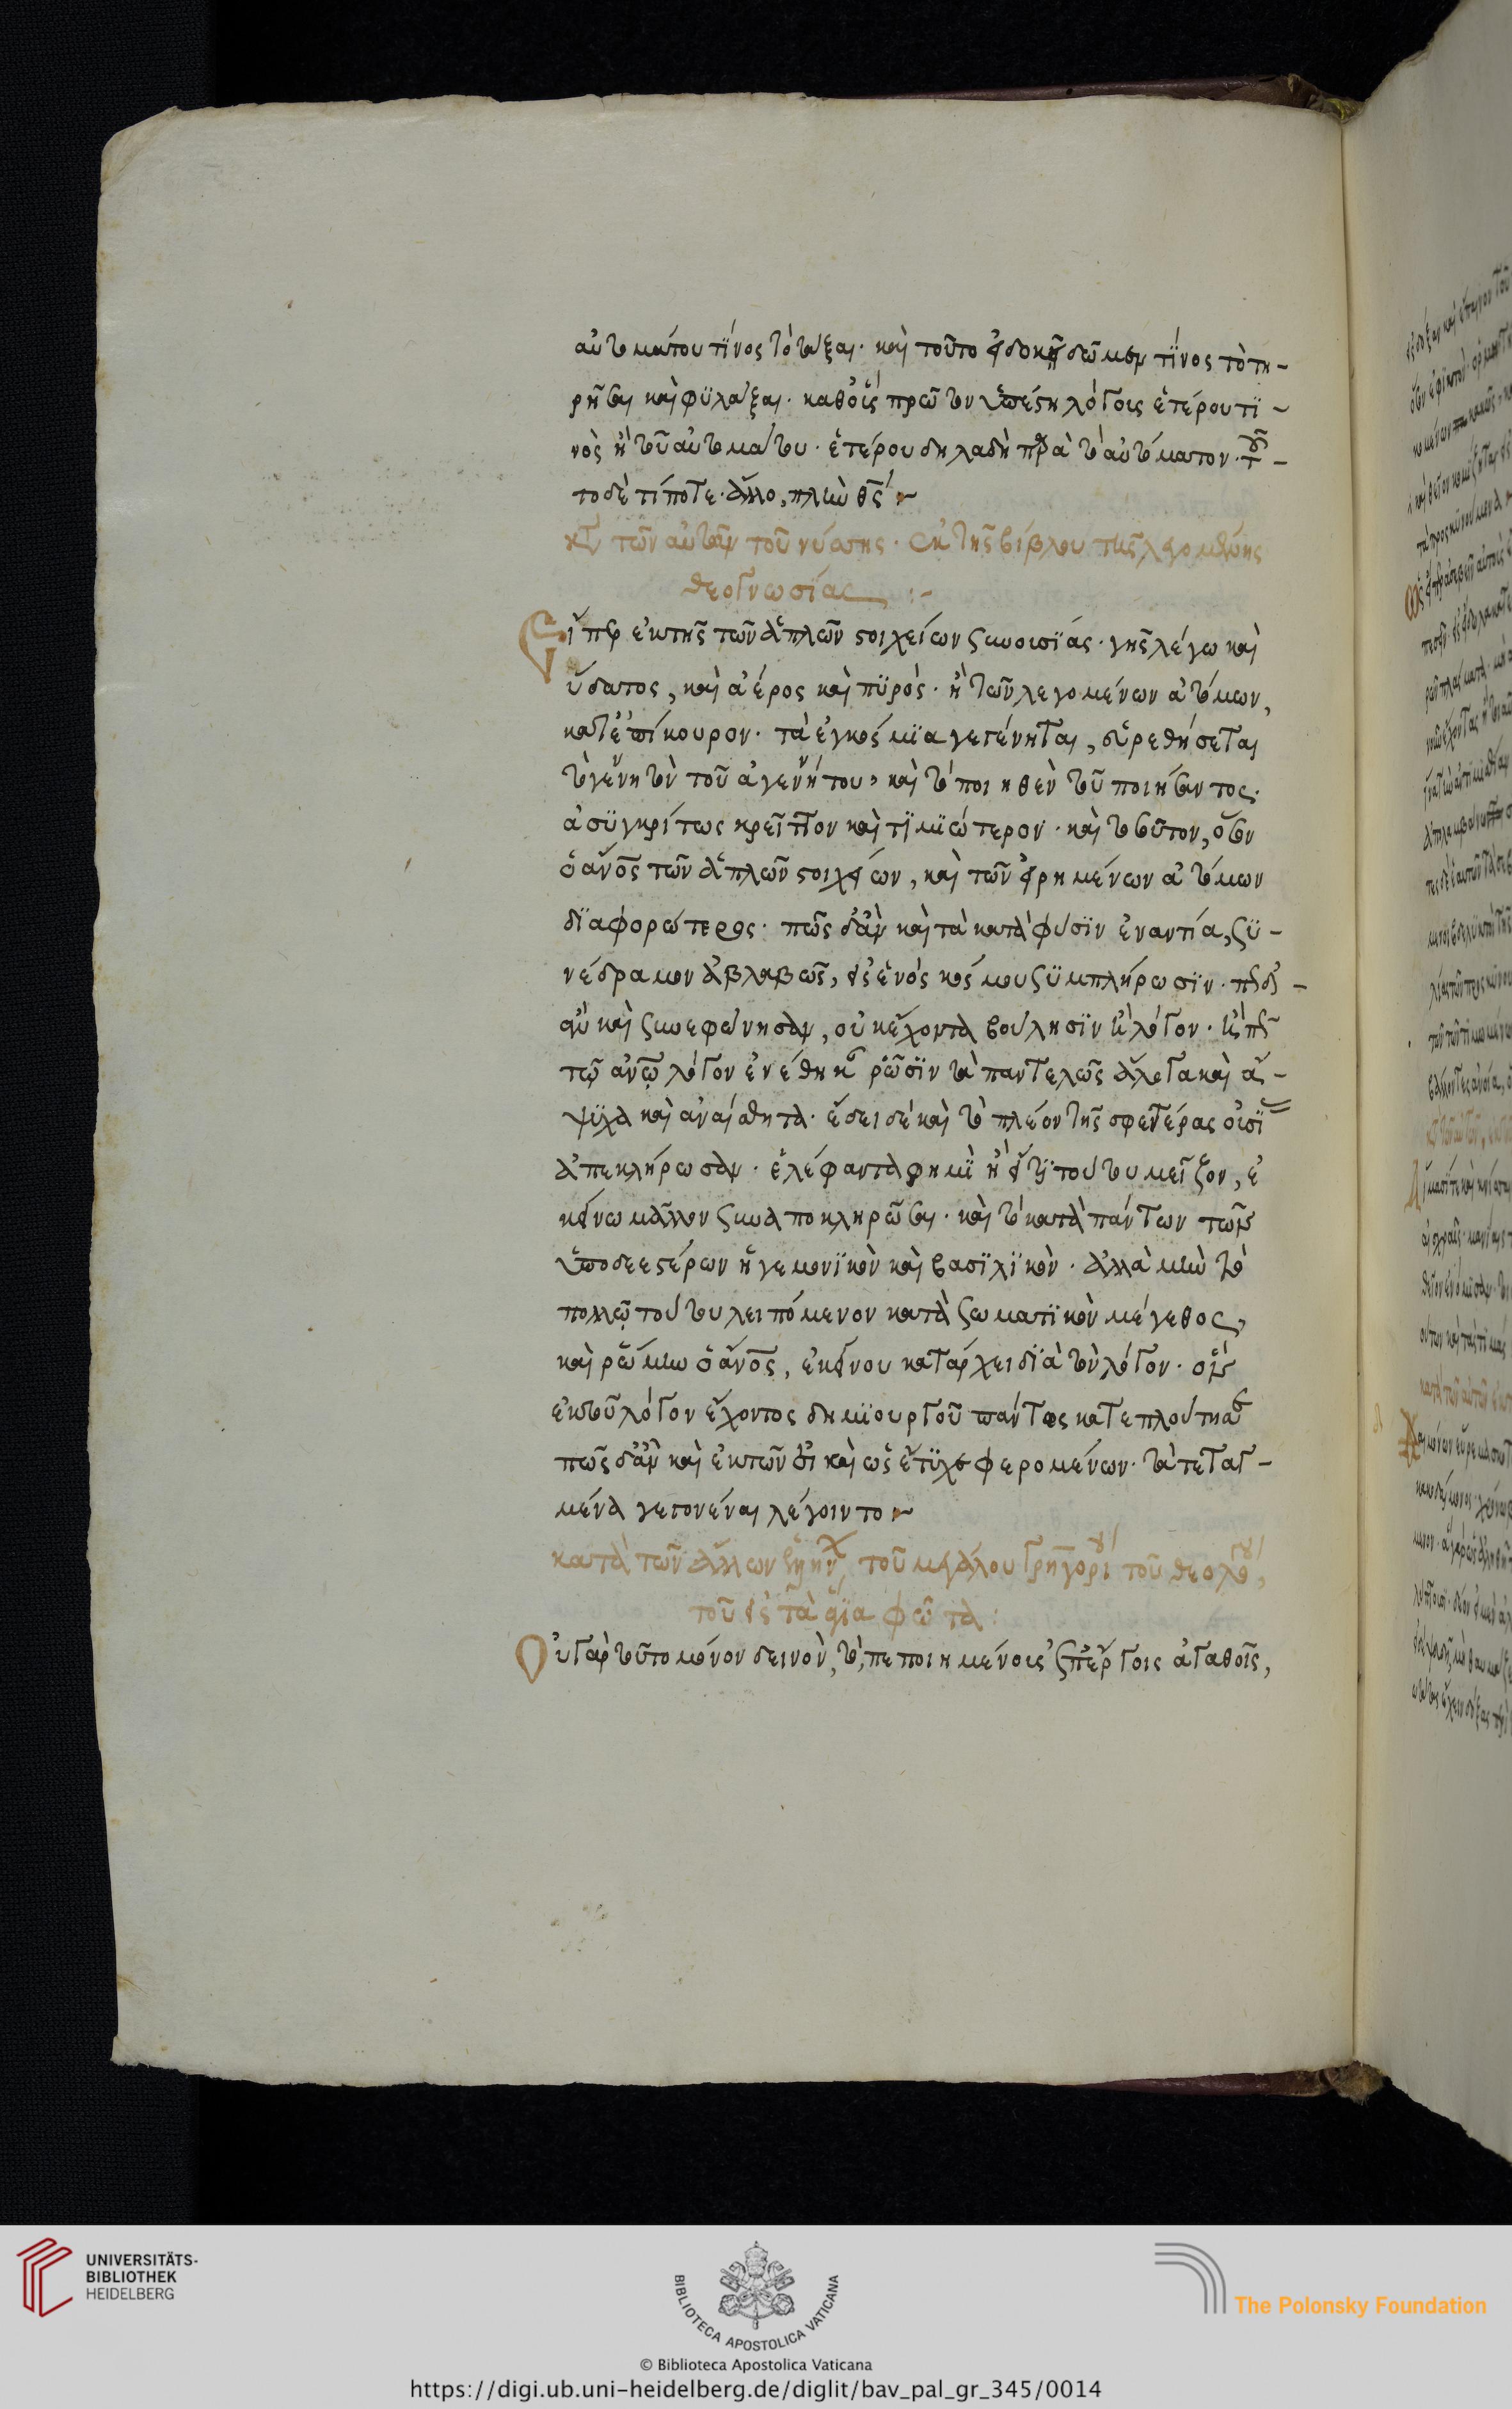 αὐτομάτου τϊνος τὸ τάξαι· καὶ τοῦτο εἰ δοκεῖ δῶμεν τϊνος τὸ τη-
ρῆσαι καὶ φϋλάξαι· καθ' οὓς πρῶτον ὑπέστη λόγοις ἑτέρου τϊ-
νὸς ἢ τοῦ αὐτομάτου· ἑτέρου δηλαδὴ παρὰ τὸ αὐτόματον· τοῦ-
το δὲ τί ποτε ἄλλο, πλὴν θς
κτ τῶν αὐτῶν τοῦ νύσης· ἐκ τῆς βίβλου τῆς λεγομένης
θεογνωσίας :-
Εἴπερ ἐκ τῆς τῶν ἁπλῶν στοιχείων συνουσϊάς· γῆς λέγω καὶ
ὕδατος, καὶ ἀέρος καὶ πϋρὸς· ἢ τῶν λεγομένων ἀτόμων,
κατ' ἐπίκουρον· τὰ ἐγκόσμϊα γεγένηται, εὑρεθήσεται
τὸ γεννητὸν τοῦ ἀγεννήτου, καὶ τὸ ποιηθὲν τοῦ ποιήσαντος·
ἀσϋγκρίτως κρεῖττον καὶ τϊμϊώτερον· καὶ τοσοῦτον, ὅσον
ὁ ἄνος τῶν ἁπλῶν στοιχείων, καὶ τῶν εἰρημένων ἀτόμων
δϊαφορώτερος· πῶς δ' ἂν καὶ τὰ κατὰ φύσϊν ἐναντία, σϋ-
νέδραμον ἀβλαβῶς, εἰς ἑνὸς κόσμου σϋμπλήρωσϊν·
ἂν καὶ συνεφώνησαν, οὐκ ἔχοντα βούλησϊν καὶ λόγον·
τῷ ἀνῳ λόγον ἐνέθηκε ῥῶσϊν τὰ παντελῶς ἄλογα καὶ ἄ-
ψϋχα καὶ ἀναίσθητα· ἔδει δὲ καὶ τὸ πλέον τῆς σφετέρας
ἀπεκλήρωσαν· ἐλέφαντα φημϊ ἢ εἴ τϊ τούτου μεῖζον, ἐ
κείνω μᾶλλον συναποκληρῶσαι· καὶ τὸ κατὰ πάντων τῶν
ὑποδεεστέρων ἡγεμονϊκὸν καὶ βασϊλϊκὸν· ἀλλὰ μὴν τὸ
πολλῷ τούτου λειπόμενον κατὰ σωματϊκὸν μέγεθος,
καὶ ῥώμην ὁ ἄνος, ἐκείνου κατάρχει δϊὰ τὸν λόγον· ὃν
ἐκ τοῦ λόγον ἔχοντος δημϊουργοῦ πάντως κατεπλούτησε
πῶς δ' ἂν καὶ ἐκ τῶν εἰκῆ καὶ ὡς ἔτϋχε φερομένων· τὰ τεταγ-
μένα γεγονέναι λέγοιντο
κατὰ τῶν ἄλλων ἑλλήν, τοῦ μεγάλου γρηγορίου τοῦ θεολόγου,
τοῦ εἰς τὰ ἅγϊα φῶτα:
Οὐ γὰρ τοῦτο μόνον δεινὸν, τὸ, πεποιημένοις ἐπ' ἔργοις ἀγαθοῖς,
UNIVERSITÄTS-
BIBLIOTHEK
HEIDELBERG
BIBLIOTECA APOSTOLICA VATICANA
The Polonsky Foundation
© Biblioteca Apostolica Vaticana
https://digi.ub.uni-heidelberg.de/diglit/bav_pal_gr_345/0014